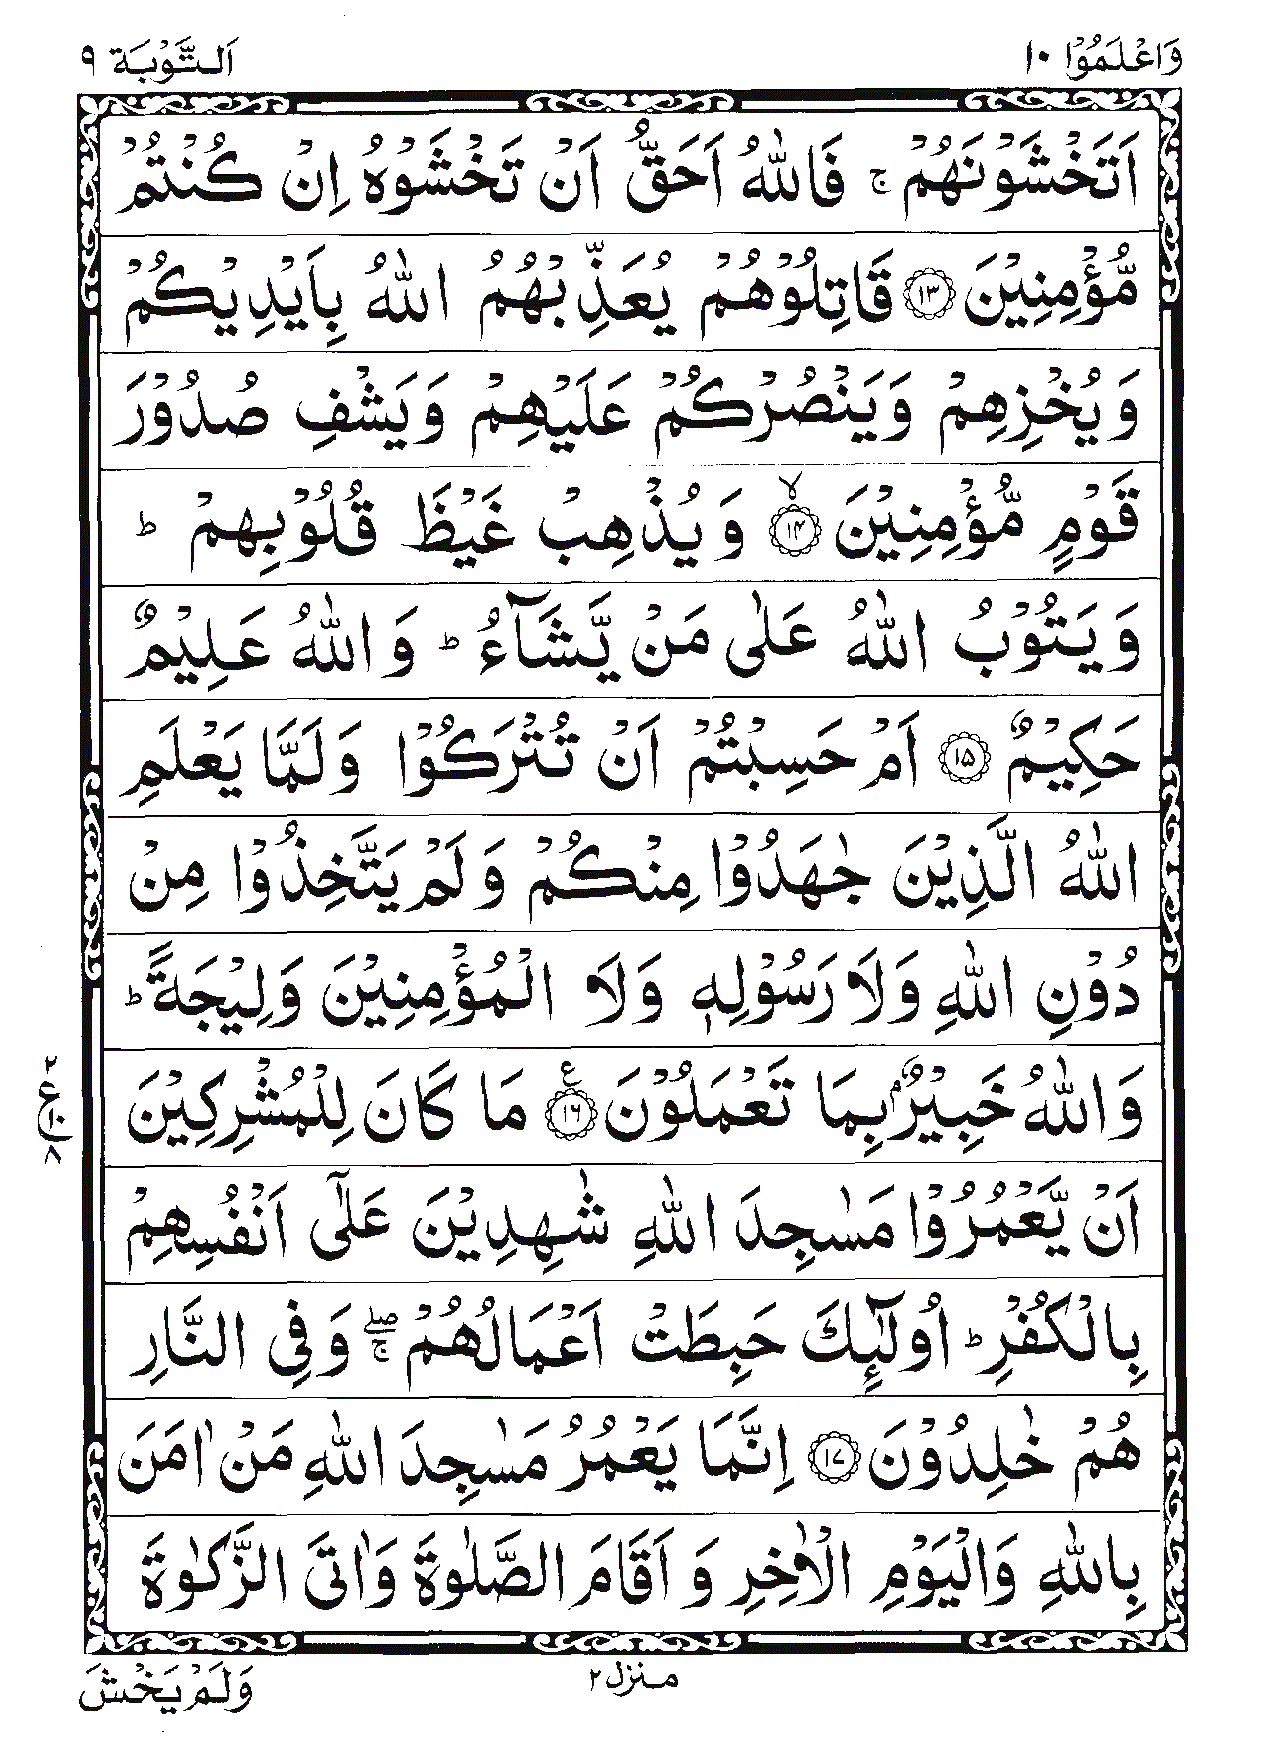 وَاعْلَمُوْۤا ١٠
اَلتَّوْبَة ٩
اَتَخْشَوْنَهُمْ ۚ فَاللّٰهُ اَحَقُّ اَنْ تَخْشَوْهُ اِنْ كُنْتُمْ
مُّؤْمِنِيْنَ ﴿١٣﴾ قَاتِلُوْهُمْ يُعَذِّبْهُمُ اللّٰهُ بِاَيْدِيْكُمْ
وَيُخْزِهِمْ وَيَنْصُرْكُمْ عَلَيْهِمْ وَيَشْفِ صُدُوْرَ
قَوْمٍ مُّؤْمِنِيْنَ ﴿١٤﴾ ۙ وَيُذْهِبْ غَيْظَ قُلُوْبِهِمْ ؕ
وَيَتُوْبُ اللّٰهُ عَلٰى مَنْ يَّشَآءُ ؕ وَاللّٰهُ عَلِيْمٌ
حَكِيْمٌ ﴿١٥﴾ اَمْ حَسِبْتُمْ اَنْ تُتْرَكُوْا وَلَمَّا يَعْلَمِ
اللّٰهُ الَّذِيْنَ جٰهَدُوْا مِنْكُمْ وَلَمْ يَتَّخِذُوْا مِنْ
دُوْنِ اللّٰهِ وَلَا رَسُوْلِهٖ وَلَا الْمُؤْمِنِيْنَ وَلِيْجَةً ؕ
وَاللّٰهُ خَبِيْرٌۢ بِمَا تَعْمَلُوْنَ ﴿١٦﴾ ع مَا كَانَ لِلْمُشْرِكِيْنَ
٢
ع
١٠
٨
اَنْ يَّعْمُرُوْا مَسٰجِدَ اللّٰهِ شٰهِدِيْنَ عَلٰٓى اَنْفُسِهِمْ
بِالْكُفْرِ ؕ اُولٰٓئِكَ حَبِطَتْ اَعْمَالُهُمْ ۖۚ وَفِى النَّارِ
هُمْ خٰلِدُوْنَ ﴿١٧﴾ اِنَّمَا يَعْمُرُ مَسٰجِدَ اللّٰهِ مَنْ اٰمَنَ
بِاللّٰهِ وَالْيَوْمِ الْاٰخِرِ وَ اَقَامَ الصَّلٰوةَ وَاٰتَى الزَّكٰوةَ
منزل ٢
وَلَمْ يَخْشَ